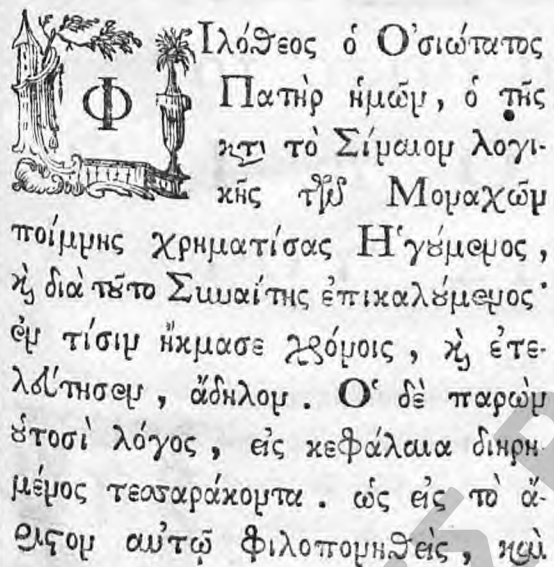 Φιλόθεος ὁ Ὁσιώτατος
Πατὴρ ἡμῶν, ὁ τῆς
κατὰ τὸ Σίναιον λογι-
κῆς τῶν Μοναχῶν
ποίμνης χρηματίσας Ἡγούμενος,
καὶ διὰ τοῦτο Σιναΐτης ἐπικαλούμενος·
ἐν τίσιν ἤκμασε χρόνοις, καὶ ἐτε-
λεύτησεν, ἄδηλον. Ὁ δὲ παρὼν
οὑτοσὶ λόγος, εἰς κεφάλαια διῃρη-
μένος τεσσαράκοντα. ὡς εἰς τὸ ἄ-
ριστον αὐτῷ φιλοπονηθεὶς, καὶ